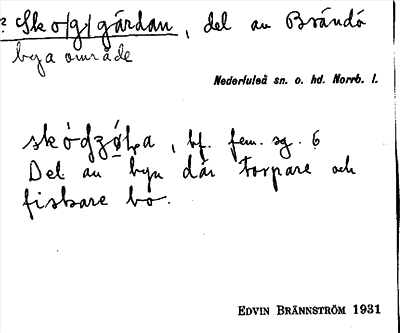 ? Sko/g/gårdan, del av Brändö
bya område
Nederluleå sn. o. hd. Norrb. l.
bf. fem. sg. 6
Del av byn där torpare och
fiskare bo.
EDVIN BRÄNNSTRÖM 1931